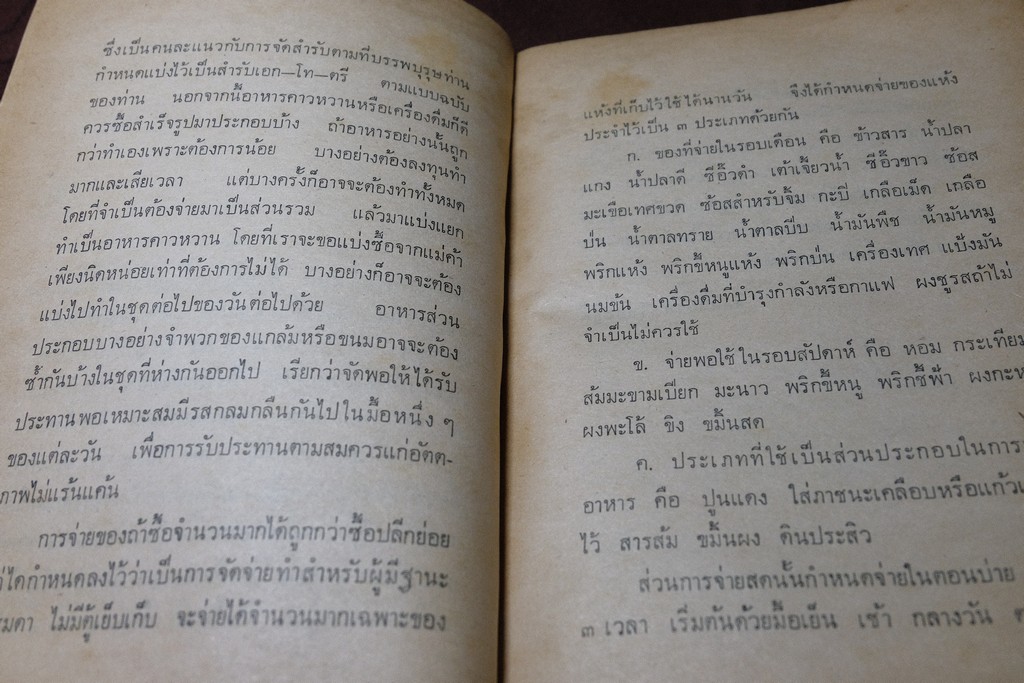 ซึ่งเป็นคนละแนวกับการจัดสำรับตามที่บรรพบุรุษท่าน
กำหนดแบ่งไว้เป็นสำรับเอก—โท—ตรี ตามแบบฉบับ
ของท่าน นอกจากนี้อาหารคาวหวานหรือเครื่องดื่มก็ดี
ควรซื้อสำเร็จรูปมาประกอบบ้าง ถ้าอาหารอย่างนั้นถูก
กว่าทำเองเพราะต้องการน้อย บางอย่างต้องลงทุนทำ
มากและเสียเวลา แต่บางครั้งก็อาจจะต้องทำทั้งหมด
โดยที่จำเป็นต้องจ่ายมาเป็นส่วนรวม แล้วมาแบ่งแยก
ทำเป็นอาหารคาวหวาน โดยที่เราจะขอแบ่งซื้อจากแม่ค้า
เพียงนิดหน่อยเท่าที่ต้องการไม่ได้ บางอย่างก็อาจจะต้อง
แบ่งไปทำในชุดต่อไปของวันต่อไปด้วย อาหารส่วน
ประกอบบางอย่างจำพวกของแกล้มหรือขนมอาจจะต้อง
ซ้ำกันบ้างในชุดที่ห่างกันออกไป เรียกว่าจัดพอให้ได้รับ
ประทานพอเหมาะสมมีรสกลมกลืนกันไปในมื้อหนึ่ง ๆ
ของแต่ละวัน เพื่อการรับประทานตามสมควรแก่อัตต-
ภาพไม่แร้นแค้น
การจ่ายของถ้าซื้อจำนวนมากได้ถูกกว่าซื้อปลีกย่อย
ได้กำหนดลงไว้ว่าเป็นการจัดจ่ายทำสำหรับผู้มีฐานะ
รมดา ไม่มีตู้เย็บเก็บ จะจ่ายได้จำนวนมากเฉพาะของ
แห้งที่เก็บไว้ใช้ได้นานวัน จึงได้กำหนดจ่ายของแห้ง
ประจำไว้เป็น ๓ ประเภทด้วยกัน
ก. ของที่จ่ายในรอบเดือน คือ ข้าวสาร น้ำปลา
แกง น้ำปลาดี ซีอิ๊วดำ เต้าเจี้ยวน้ำ ซีอิ๊วขาว ซ้อส
มะเขือเทศขวด ซ้อสสำหรับจิ้ม กะปิ เกลือเม็ด เกลือ
ป่น น้ำตาลทราย น้ำตาลปีบ น้ำมันพืช น้ำมันหมู
พริกแห้ง พริกขี้หนูแห้ง พริกป่น เครื่องเทศ แป้งมัน
นมข้น เครื่องดื่มที่บำรุงกำลังหรือกาแฟ ผงชูรสถ้าไม่
จำเป็นไม่ควรใช้
ข. จ่ายพอใช้ในรอบสัปดาห์ คือ หอม กระเทียม
ส้มมะขามเปียก มะนาว พริกขี้หนู พริกชี้ฟ้า ผงกะห
ผงพะโล้ ขิง ขมิ้นสด
ค. ประเภทที่ใช้เป็นส่วนประกอบในการ
อาหาร คือ ปูนแดง ใส่ภาชนะเคลือบหรือแก้วเ
ไว้ สารส้ม ขมิ้นผง ดินประสิว
ส่วนการจ่ายสดนั้นกำหนดจ่ายในตอนบ่าย
๓ เวลา เริ่มต้นด้วยมื้อเย็น เช้า กลางวัน